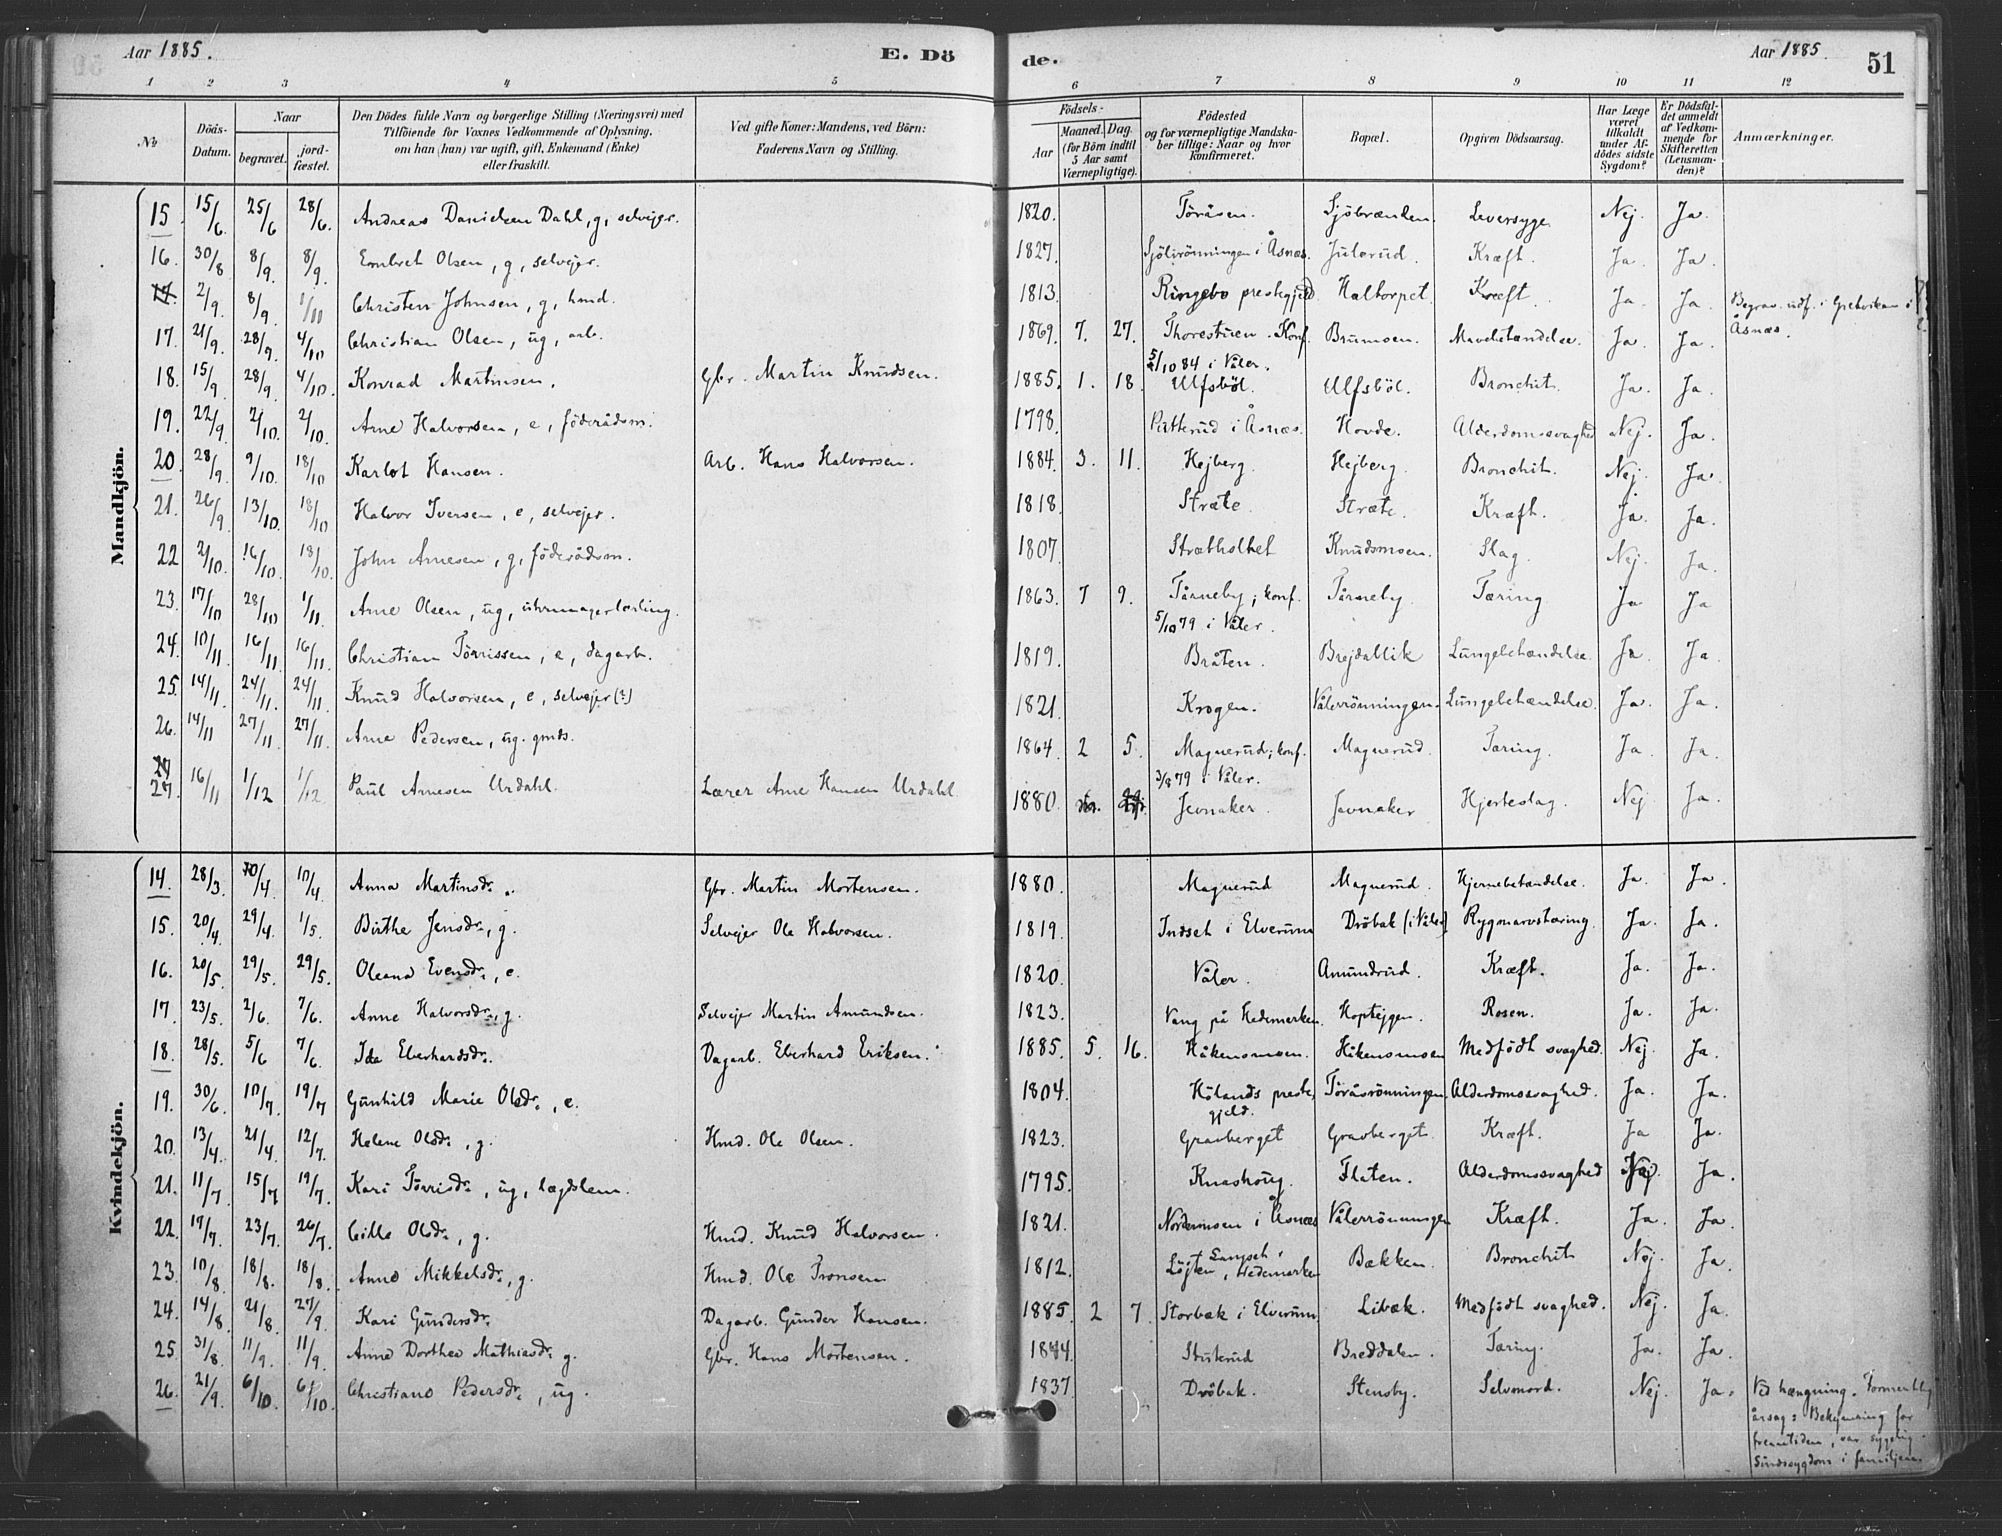 Aar 1885. E. Dö de. Aar 1885. 51
1 2 3 4 5 6 7 8 9 10 11 12
№ Döds-Datum. Naar begravet. jordfæstet. Den Dödes fulde Navn og borgerlige Stilling (Næringsvei) med Tilföiende for Voxnes Vedkommende af Oplysning, om han (hun) var ugift, gift, Enkemand (Enke) eller fraskilt. Ved gifte Koner: Mandens, ved Börn: Faderens Navn og Stilling. Födsels- Aar Maaned. Dag. (for Börn indtil 5 Aar samt Værnepligtige). Födested og for værnepligtige Mandskaber tillige: Naar og hvor konfirmeret. Bopæl. Opgiven Dödsaarsag. Har Læge været tilkaldt under Afdödes sidste Sygdom? Er Dödsfaldet anmeldt af Vedkommende for Skifteretten (Lensmanden)? Anmærkninger.
Mandkjön.
15. 15/6 25/6 28/6. Andreas Danielsen Dahl, g, selvejer. 1820. Töråsen. Sjöbrænden. Leversyge Nej. Ja.
16. 30/8 8/9. 8/9. Embret Olsen, g, selvejer. 1827. Sjölirönningen i Åsnæs. Julerud. Kræft. Ja. Ja.
2/9. 8/9. 1/11 Christen Johnsen, g, hmd. 1813. Ringebo prestegjeld Haltorpet. Kræft. Ja. Ja. Begrav. udf. i Gretvikan i Åsnæs.
17. 21/9. 28/9. 4/10 Christian Olsen, ug, arb. 1869. 7. 27. Thorestuen. Konf. 5/10 84 i Våler. Brumoen. Mavebetændelse. Ja. Ja.
18. 15/9. 28/9. 4/10. Konrad Martinsen. Gbr. Martin Knudsen. 1885. 1. 18. Ulfsböl. Ulfsböl. Bronchit. Ja. Ja.
19. 22/9. 2/10. 2/10. Arne Halvorsen, e, föderådsm. 1798. Putterud i Åsnæs. Hovde. Alderdomssvaghed Nej. Ja.
20. 28/9. 9/10. 18/10 Karlot Hansen. Arb. Hans Halvorsen. 1884. 3. 11. Hejberg. Hejberg. Bronchit. Nej. Ja.
21. 26/9. 13/10. 18/10 Halvor Iversen, e, selvejer. 1818. Stræte. Stræte. Kræft. Ja. Ja.
22 2/10. 16/10. 18/10. John Arnesen, g, föderådsm. 1807. Strætholtet Knudsmoen. Slag. Nej. Ja.
23. 17/10 28/10 1/11. Arne Olsen, ug, uhrmagerlærling. 1863. 7 9. Tårneby; konf. 5/10 79 i Våler. Tårneby. Tæring Ja Ja
24. 10/11. 16/11. 16/11. Christian Törrissen, e, dagarb. 1819. Bråten. Brejdablik Lungebetændelse. Ja. Ja.
25. 14/11. 24/11. 24/11. Knud Halvorsen, e, selvejer (?) 1821. Krogen. Vålerrönningen. Lungebetændelse. Ja. Ja.
26. 14/11 27/11. 27/11. Arne Pedersen, ug. gmds. 1864. 2 5. Magnerud; konf. 3/8 79 i Våler. Magnerud. Tæring. Ja. Ja.
27. 16/11 1/12 1/12 Paul Arnesen Urdahl. Lærer Arne Hansen Urdahl. 1880. Jevnaker. Jevnaker Hjerteslag. Nej Ja.
Kvindekjön.
14. 28/3. 10/4. 10/4. Anna Martinsdr. Gbr. Martin Mortensen. 1880. Magnerud Magnerud. Hjernebetændelse. Ja. Ja.
15. 20/4. 29/4. 1/5. Birthe Jensdr., g. Selvejer Ole Halvorsen. 1819. Indset i Elverum Dröbak (i Våler) Rygmarvstæring. Ja. Ja.
16. 20/5. 29/5. 29/5. Oleana Evensdr., e. 1820. Våler. Amundrud. Kræft. Ja. Ja.
17. 23/5. 2/6. 7/6. Anne Halvorsdr., g. Selvejer Martin Amundsen. 1823. Vang på Hedemarken. Hoptejgen. Rosen. Ja. Ja.
18. 28/5. 5/6 7/6 Ida Eberhardsdr. Dagarb. Eberhard Eriksen. 1885. 5. 16. Håkensmoen. Håkensmoen Medfödt svaghed. Nej. Ja.
19. 30/6. 10/7. 19/7 Gunhild Marie Olsdr., e. 1804. Hölands prestegjeld. Töråsrönningen. Alderdomssvaghed. Ja. Ja.
20. 13/4. 21/4. 12/7. Helene Olsdr., g. Hmd. Ole Olsen. 1823. Gravberget Gravberget. Kræft. Ja Ja.
21. 11/7 15/7 19/7. Kari Törrisdr., ug, lægdslem. 1795. Knashoug. Flaten. Alderdomssvaghed Nej. Ja.
22. 17/7. 23/7. 26/7. Cille Olsdr., g. Hmd. Knud Halvorsen. 1821. Nordermoen i Åsnæs Vålerrönningen Kræft. Ja. Ja.
23. 10/8 18/8. 18/8. Anne Mikkelsdr., g. Hmd. Ole Tronsen 1812. Langset i Löjten, Hedemarken Bækken. Bronchit Nej. Ja.
24. 14/8. 21/8. 27/9. Kari Gundersdr. Dagarb. Gunder Hansen. 1885. 2 7. Storbæk i Elverum Libæk. Medfödt svaghed. Nej. Ja.
25. 31/8. 11/9. 11/9. Anne Dorthea Mathiasdr. g. Gbr. Hans Mortensen. 1844. Stuterud Breddalen. Tæring. Ja. Ja.
26. 21/9. 6/10. 6/10. Christiane Pedersdr., ug. 1837 Dröbak. Stensby. Selvmord. Nej. Ja. Ved hængning. Formentlig årsag: Bekymring for fremtiden, var sygelig. Sindssygdom i familjen.